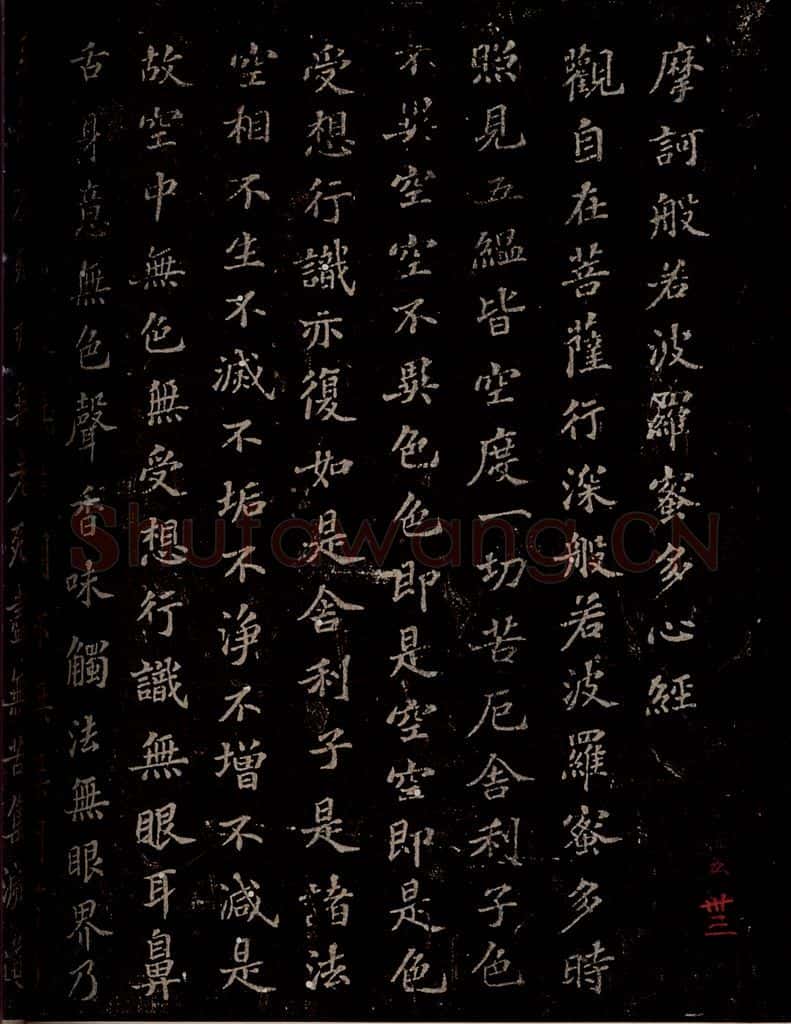 摩訶般若波羅蜜多心經
觀自在菩薩行深般若波羅蜜多時
照見五緼皆空度一切苦厄舍利子色
不異空空不異色色即是空空即是色
受想行識亦復如是舍利子是諸法
空相不生不滅不垢不淨不增不減是
故空中無色無受想行識無眼耳鼻
舌身意無色聲香味觸法無眼界乃
老死盡無苦集滅道
卅三
Shufawang.CN